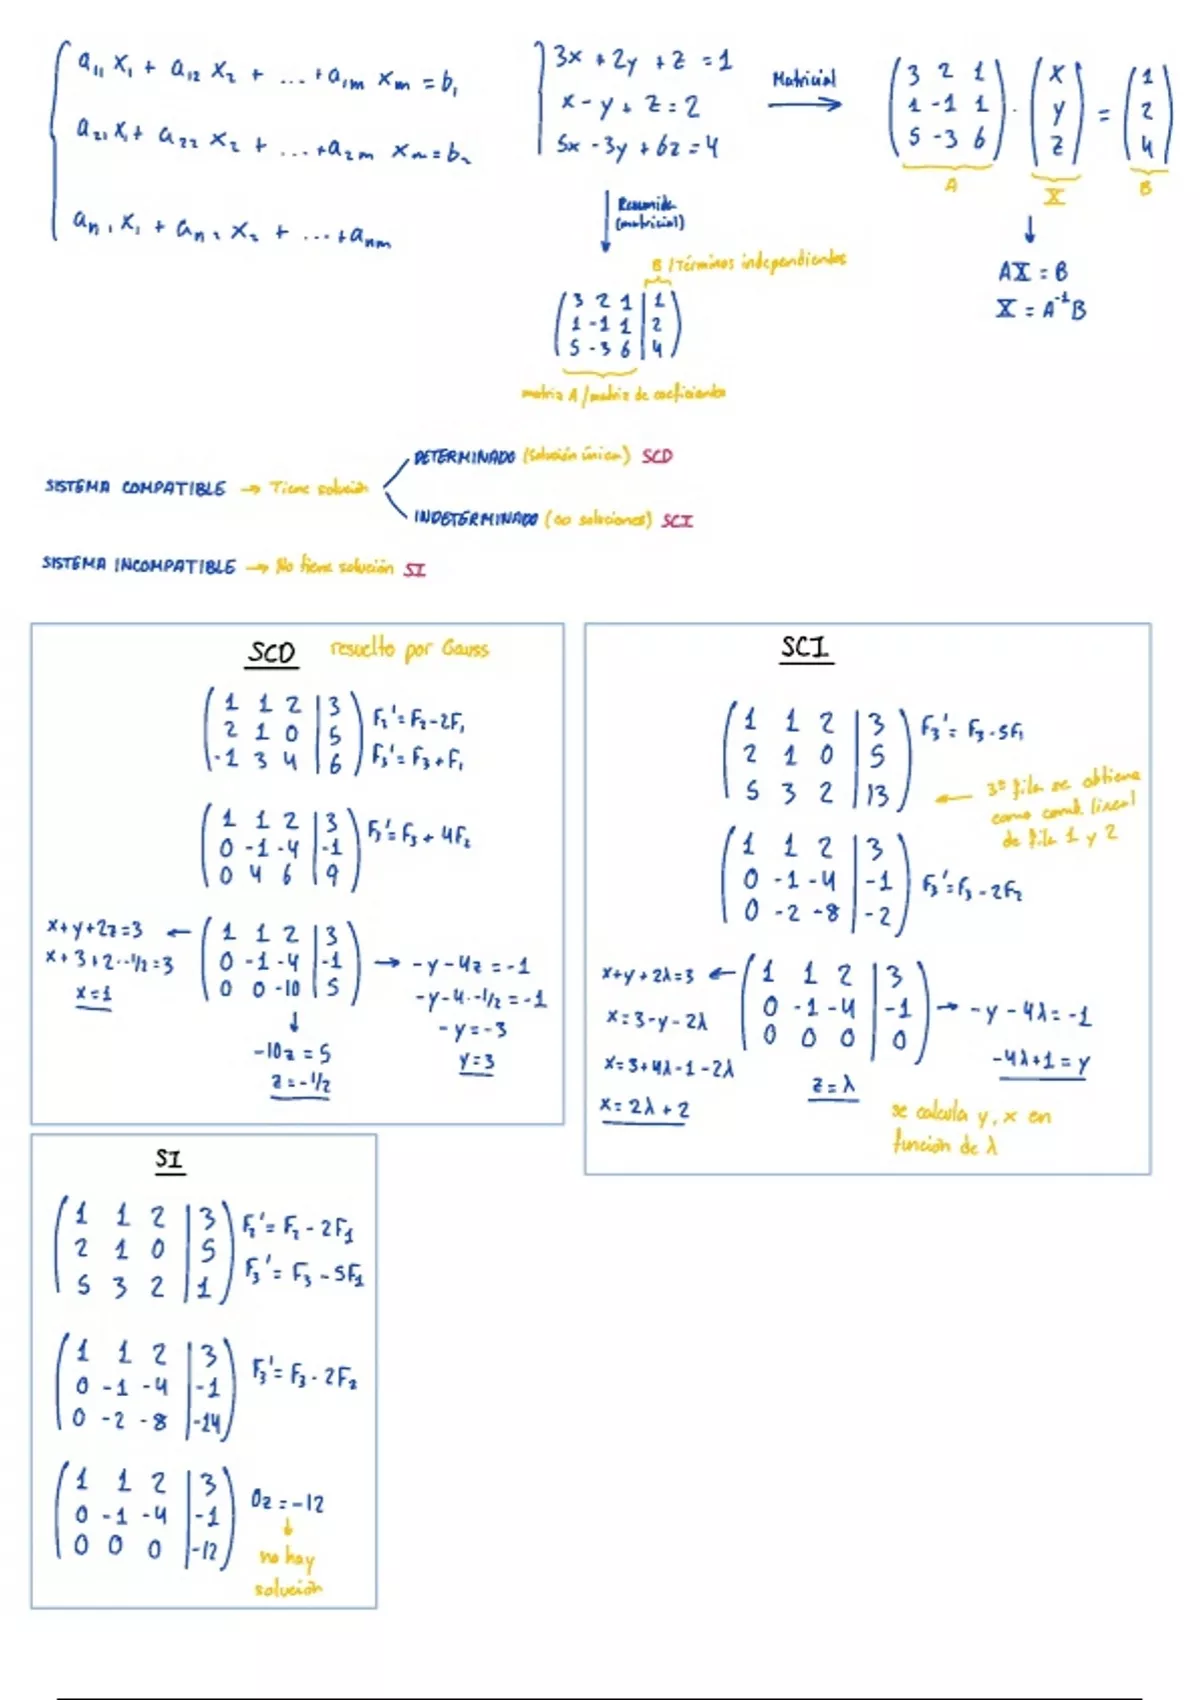 a₁₁ x₁ + a₁₂ x₂ + ... + a₁m xm = b₁
a₂₁ x₁ + a₂₂ x₂ + ... + a₂m xm = b₂
an₁ x₁ + an₂ x₂ + ... + anm
3x + 2y + z = 1
x - y + z = 2
5x - 3y + 6z = 4
Matricial
3 2 1
1 -1 1
5 -3 6
A
·
x
y
z
X
=
1
2
4
B
AX = B
X = A⁻¹B
Resumida
(matricial)
B / Términos independientes
3 2 1 | 1
1 -1 1 | 2
5 -3 6 | 4
matriz A / matriz de coeficientes
SISTEMA COMPATIBLE → Tiene solución
DETERMINADO (solución única) SCD
INDETERMINADO (∞ soluciones) SCI
SISTEMA INCOMPATIBLE → No tiene solución SI
SCD resuelto por Gauss
1 1 2 | 3
2 1 0 | 5
-1 3 4 | 6
F₂' = F₂ - 2F₁
F₃' = F₃ + F₁
1 1 2 | 3
0 -1 -4 | -1
0 4 6 | 9
F₃' = F₃ + 4F₂
1 1 2 | 3
0 -1 -4 | -1
0 0 -10 | 5
x + y + 2z = 3 ←
x + 3 + 2·-1/2 = 3
x = 1
→ -y - 4z = -1
-y - 4·-1/2 = -1
-y = -3
y = 3
↓
-10z = 5
z = -1/2
SCI
1 1 2 | 3
2 1 0 | 5
5 3 2 | 13
F₃' = F₃ - 5F₁
← 3ª fila se obtiene
como comb. lineal
de fila 1 y 2
1 1 2 | 3
0 -1 -4 | -1
0 -2 -8 | -2
F₃' = F₃ - 2F₂
1 1 2 | 3
0 -1 -4 | -1
0 0 0 | 0
x + y + 2λ = 3 ←
x = 3 - y - 2λ
x = 3 + 4λ - 1 - 2λ
x = 2λ + 2
z = λ
→ -y - 4λ = -1
-4λ + 1 = y
se calcula y, x en
función de λ
SI
1 1 2 | 3
2 1 0 | 5
5 3 2 | 1
F₂' = F₂ - 2F₁
F₃' = F₃ - 5F₁
1 1 2 | 3
0 -1 -4 | -1
0 -2 -8 | -14
F₃' = F₃ - 2F₂
1 1 2 | 3
0 -1 -4 | -1
0 0 0 | -12
0z = -12
↓
no hay
solución